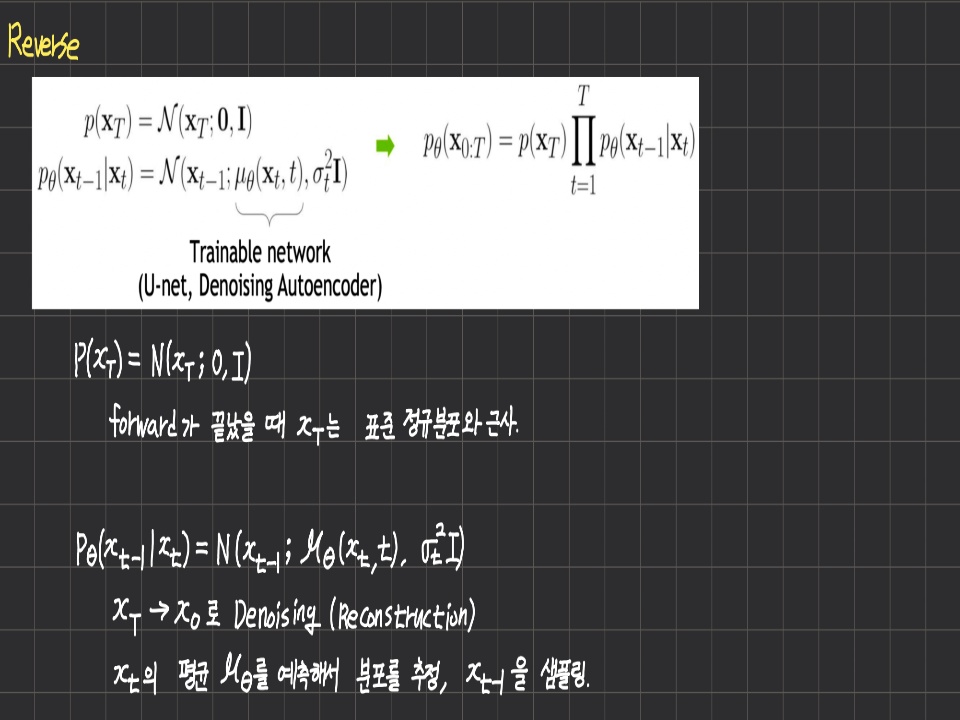 Reverse
p(x_T) = N(x_T; 0, I)
p_θ(x_{t-1}|x_t) = N(x_{t-1}; μ_θ(x_t, t), σ_t^2 I)
p_θ(x_{0:T}) = p(x_T) ∏_{t=1}^{T} p_θ(x_{t-1}|x_t)
Trainable network
(U-net, Denoising Autoencoder)
P(x_T) = N(x_T ; 0, I)
forward가 끝났을 때 x_T는 표준 정규분포와 근사.
P_θ(x_{t-1}|x_t) = N(x_{t-1} ; μ_θ(x_t, t), σ_t^2 I)
x_T → x_0로 Denoising (Reconstruction)
x_t의 평균 μ_θ를 예측해서 분포를 추정, x_{t-1}을 샘플링.